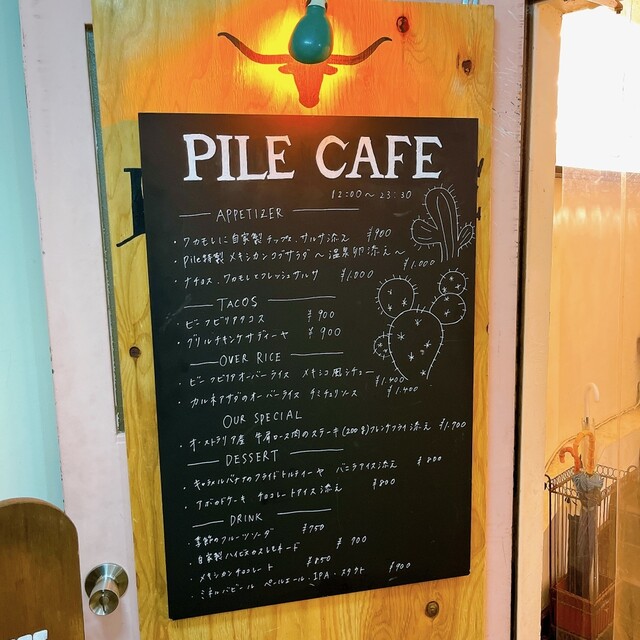 PILE CAFE
12:00〜23:30
APPETIZER
・ワカモレに自家製チップス、サルサ添え ¥900
・Pile特製メキシカンコブサラダ〜温泉卵添え〜 ¥1.000
・ナチョス、ワカモレとフレッシュサルサ ¥1.000
TACOS
・ビーフビリアタコス ¥900
・グリルチキンケサディーヤ ¥900
OVER RICE
・ビーフビリアオーバーライス メキシコ風シチュー ¥1.400
・カルネアサダのオーバーライス チミチュリソース ¥1.400
OUR SPECIAL
・オーストラリア産 牛肩ロース肉のステーキ(200g)フレンチフライ添え ¥1.700
DESSERT
・キャラメルバナナのフライドトルティーヤ バニラアイス添え ¥800
・アボカドケーキ チョコレートアイス添え ¥800
DRINK
・季節のフルーツソーダ ¥750
・自家製ハイビスカスレモネード ¥700
・メキシカンチョコレート ¥850
・ミネルバビール ペールエール、IPA・スタウト ¥900